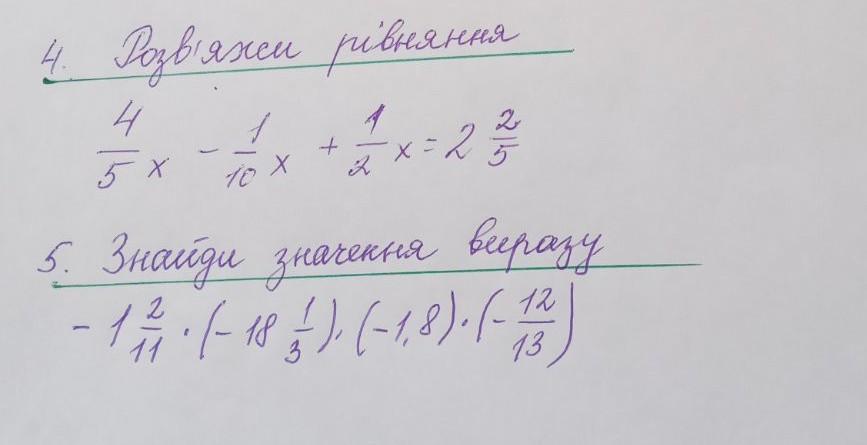 4. Розв'яжи рівняння
4/5 x - 1/10 x + 1/2 x = 2 2/5
5. Знайди значення виразу
- 1 2/11 · (- 18 1/3) · (-1,8) · (- 12/13)